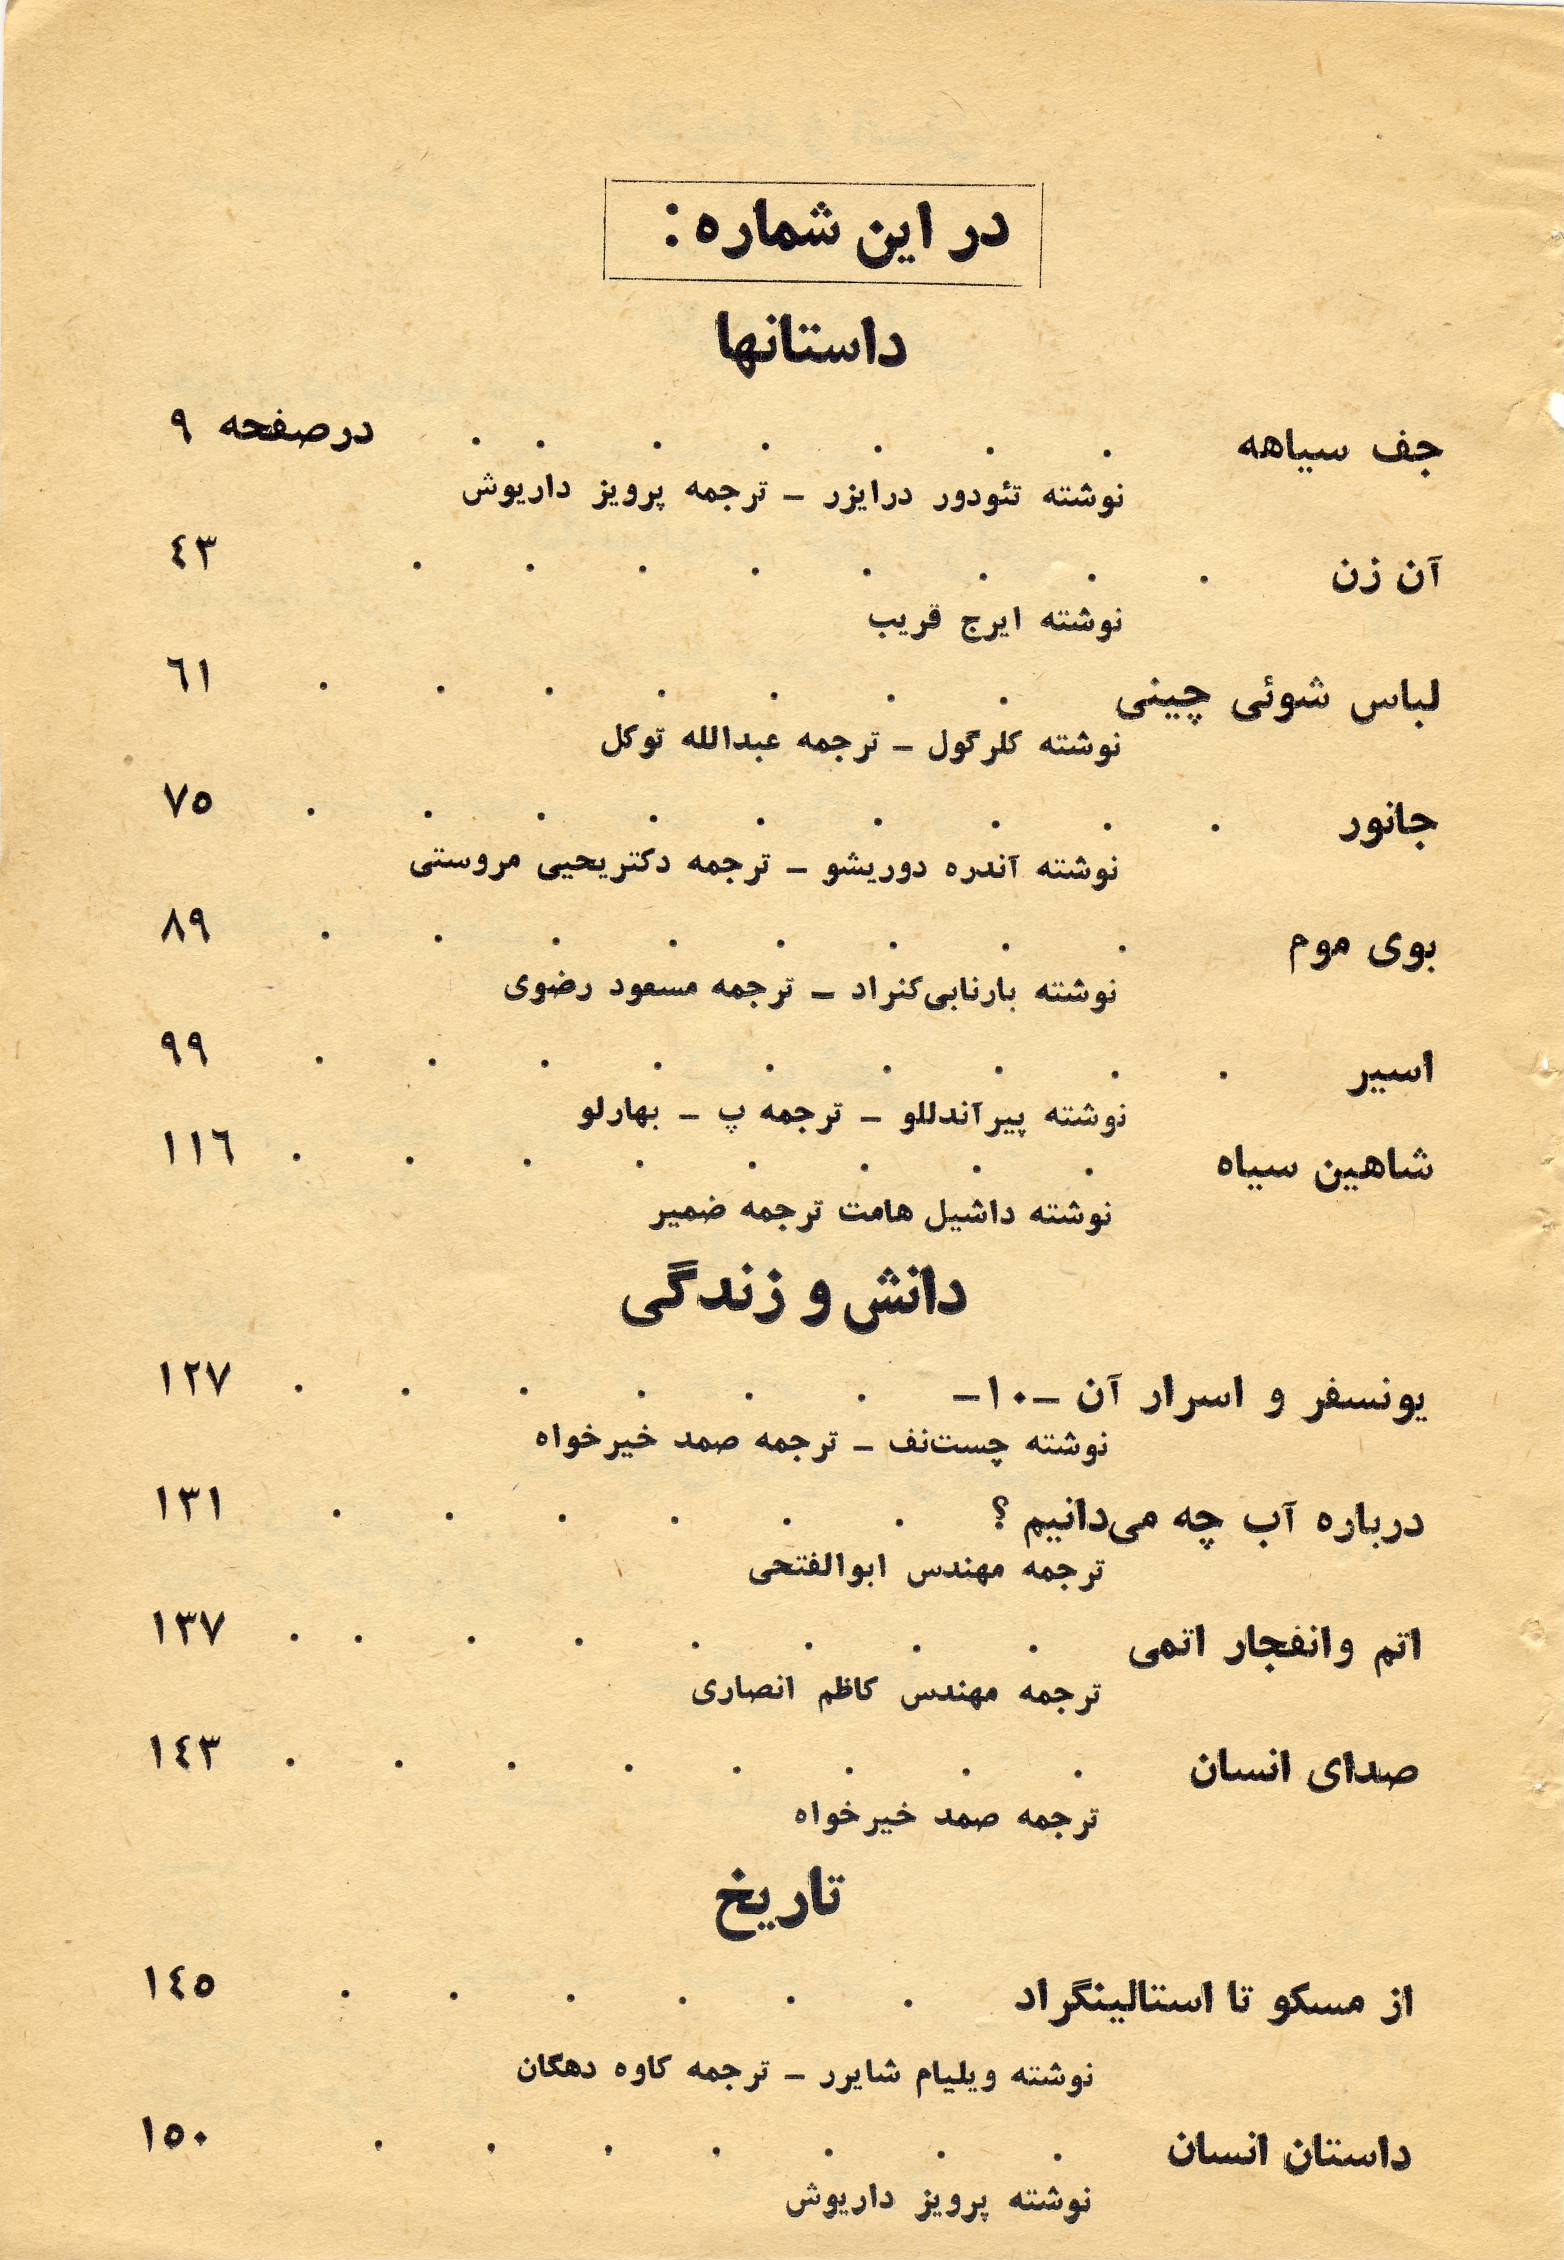 در این شماره :
داستانها
جف سیاهه . . . . . . . درصفحه ۹
نوشته تئودور درایزر – ترجمه پرویز داریوش
آن زن . . . . . . . . ٤۳
نوشته ایرج قریب
لباس شوئی چینی . . . . . . . ٦۱
نوشته کلرگول – ترجمه عبدالله توکل
جانور . . . . . . . . . ۷٥
نوشته آندره دوریشو – ترجمه دکتریحیی مروستی
بوی موم . . . . . . . . ۸۹
نوشته بارنابی‌کنراد – ترجمه مسعود رضوی
اسیر . . . . . . . . . ۹۹
نوشته پیرآندللو – ترجمه پ – بهارلو
شاهین سیاه . . . . . . . . ۱۱٦
نوشته داشیل هامت ترجمه ضمیر
دانش و زندگی
یونسفر و اسرار آن –۱۰– . . . . . . ۱۲۷
نوشته چست‌نف – ترجمه صمد خیرخواه
درباره آب چه می‌دانیم ؟ . . . . . . ۱۳۱
ترجمه مهندس ابوالفتحی
اتم وانفجار اتمی . . . . . . . . ۱۳۷
ترجمه مهندس کاظم انصاری
صدای انسان . . . . . . . . ۱٤۳
ترجمه صمد خیرخواه
تاریخ
از مسکو تا استالینگراد . . . . . . ۱٤٥
نوشته ویلیام شایرر – ترجمه کاوه دهگان
داستان انسان . . . . . . . ۱٥۰
نوشته پرویز داریوش